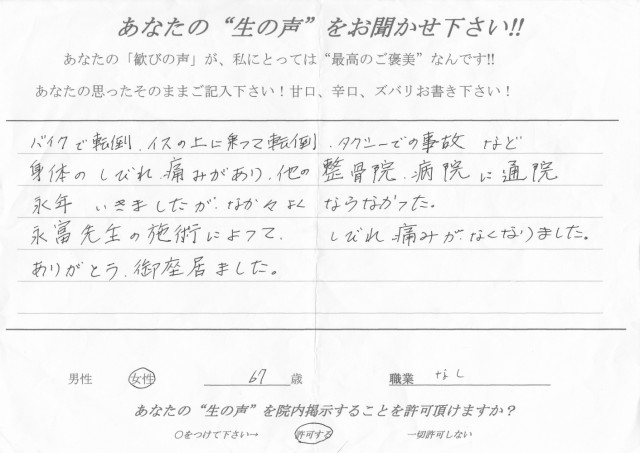 あなたの“生の声”をお聞かせ下さい!!
あなたの「歓びの声」が、私にとっては“最高のご褒美”なんです!!
あなたの思ったそのままご記入下さい！甘口、辛口、ズバリお書き下さい！
バイクで転倒、イスの上に乗って転倒、タクシーでの事故 など
身体のしびれ、痛みがあり、他の整骨院、病院に通院
永年 いきましたが、なか々よくならなかった。
永富先生の施術によって、しびれ、痛みがなくなりました。
ありがとう、御座居ました。
男性 女性 67歳 職業 なし
あなたの“生の声”を院内掲示することを許可頂けますか？
〇をつけて下さい→ 許可する 一切許可しない